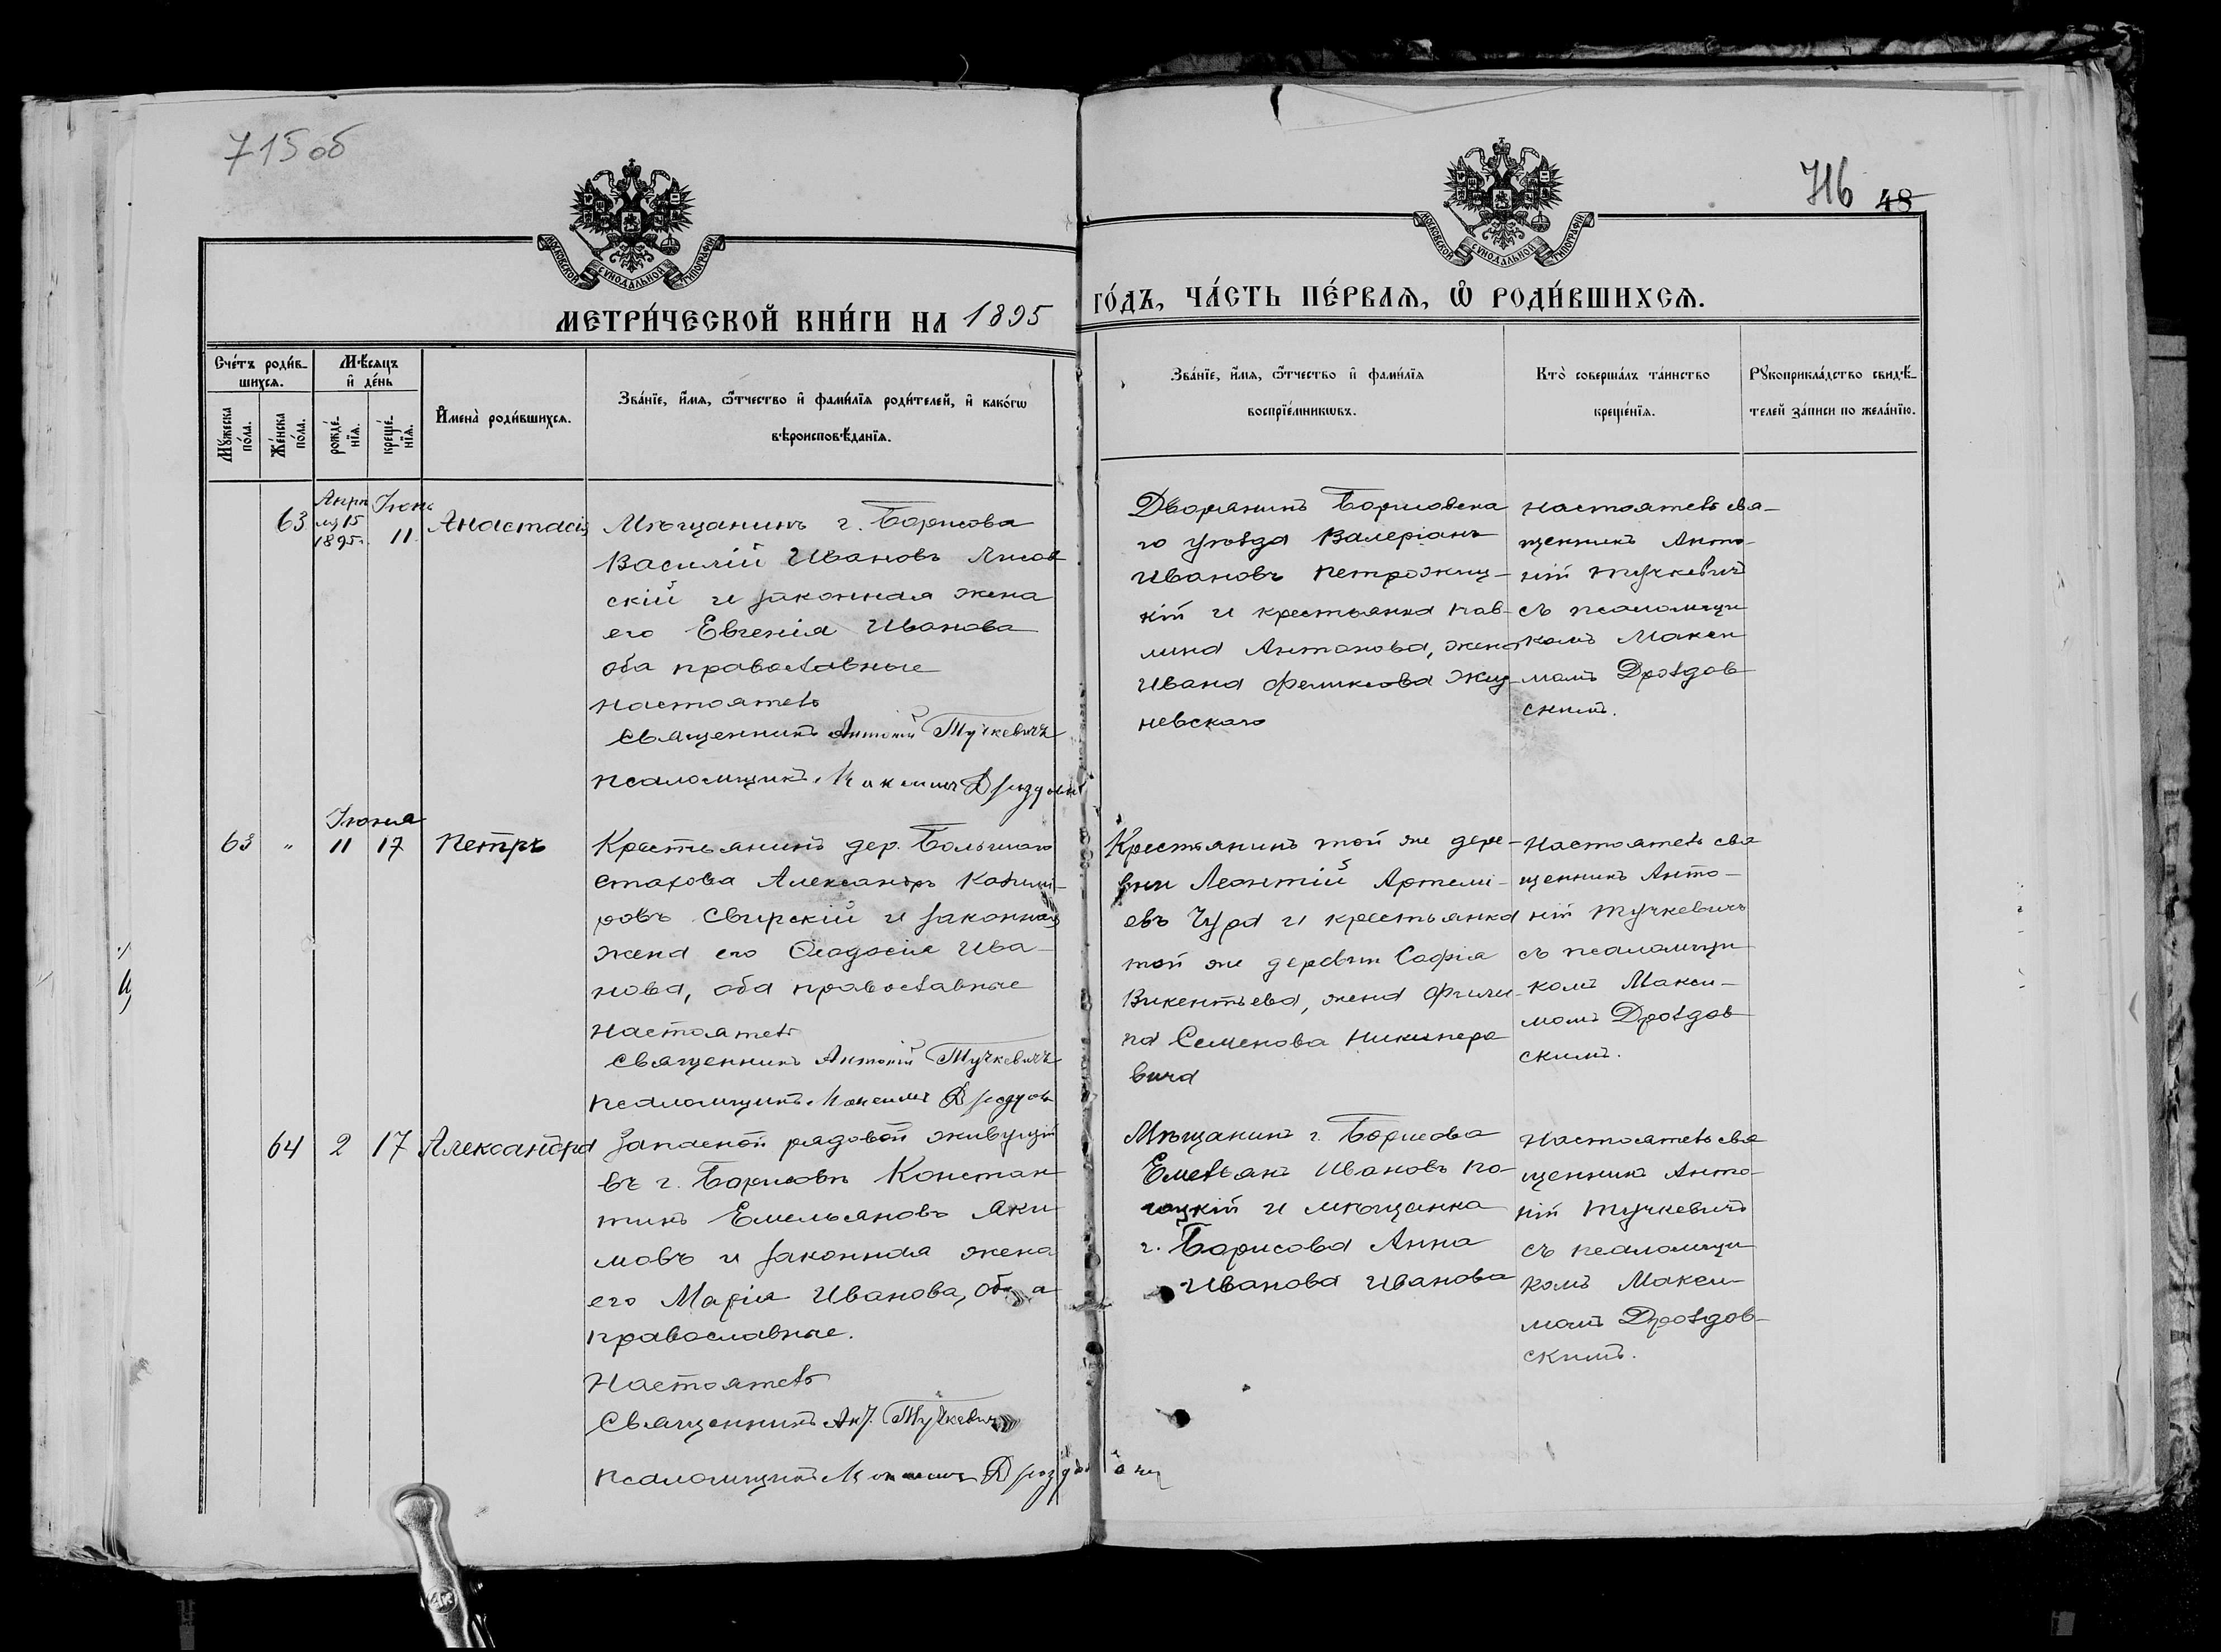 715 об
716 48
МОСКОВСКОЙ СѴНОДАЛЬНОЙ ТИПОГРАФІИ
МОСКОВСКОЙ СѴНОДАЛЬНОЙ ТИПОГРАФІИ
МЕТРИ́ЧЕСКОЙ КНИ́ГИ НА 1895
ГО́ДЪ, ЧА́СТЬ ПЕ́РВАЯ, Ѽ РОДИ́ВШИХСЯ.
Счетъ роди́в-
шихся.
Мѣ́сяцъ
и҆ де́нь
Мꙋжеска
по́ла.
Же́нска
по́ла.
рожде́-
нїя.
креще́-
нїя.
И҆мена̀ роди́вшихся.
Зва́нїе, и҆́мя, ѻ҆́тчество и҆ фами́лїя роди́телей, и҆ како́гѡ
вѣроисповѣ́данїя.
Зва́нїе, и҆́мя, ѻ҆́тчество и҆ фами́лїя
воспрїе́мникѡвъ.
Кто̀ соверша́лъ та́инство
креще́нїя.
Рꙋкоприкла́дство свидѣ́-
телей за́писи по жела́нїю.
63
Апрѣ
ля 15
1895 г.
Іюнь
11
Анастасія
Мѣщанинъ г. Борисова
Василій Ивановъ Лисов
скій и законная жена
его Евгенія Иванова
оба православные
Настоятель
Священникъ Антоній Тучкевичъ
Псаломщикъ Максимъ Дроздовск
Дворянинъ Борисовска
го уѣзда Валеріанъ
Ивановъ Петрожиц-
кій и крестьянка Пав-
лина Антонова, жена
Ивана Феликсова Жиз-
невскаго
Настоятель свя-
щенникъ Анто-
ній Тучкевичъ
съ псаломщи
комъ Макси
момъ Дроздов
скимъ.
Іюня
63 " 11 17 Петръ
Крестьянинъ дер. Большаго
Стахова Александръ Казими-
ровъ Свирскій и законная
жена его Ѳеодосія Ива-
нова, оба православные
Настоятель
Священникъ Антоній Тучкевичъ
Псаломщикъ Максимъ Дроздов
Крестьянинъ той же дере-
вни Леонтій Артеми-
евъ Чура и крестьянка
той же деревни Софія
Викентьева, жена Фили-
па Семенова Никипера
вича
Настоятель свя
щенникъ Анто-
ній Тучкевичъ
съ псаломщи
комъ Макси-
момъ Дроздов
скимъ.
64 2 17 Александра
Запасной рядовой живущій
въ г. Борисовѣ Констан
тинъ Емельяновъ Аки
мовъ и законная жена
его Марія Иванова, оба
православные.
Настоятель
Священникъ Ант. Тучкевичъ
Псаломщикъ Максимъ Дроздовскій
Мѣщанинъ г. Борисова
Емельянъ Ивановъ По-
лоцкій и мѣщанка
г. Борисова Анна
Иванова Иванова
Настоятель свя
щенникъ Анто-
ній Тучкевичъ
съ псаломщи
комъ Макси-
момъ Дроздов-
скимъ.